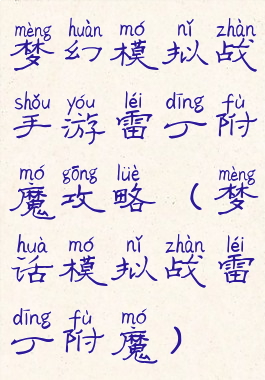 mèng huàn mó nǐ zhàn
梦幻模拟战
shǒu yóu léi dīng fù
手游雷丁附
mó gōng lüè mèng
魔攻略（梦
huà mó nǐ zhàn léi
话模拟战雷
dīng fù mó
丁附魔）